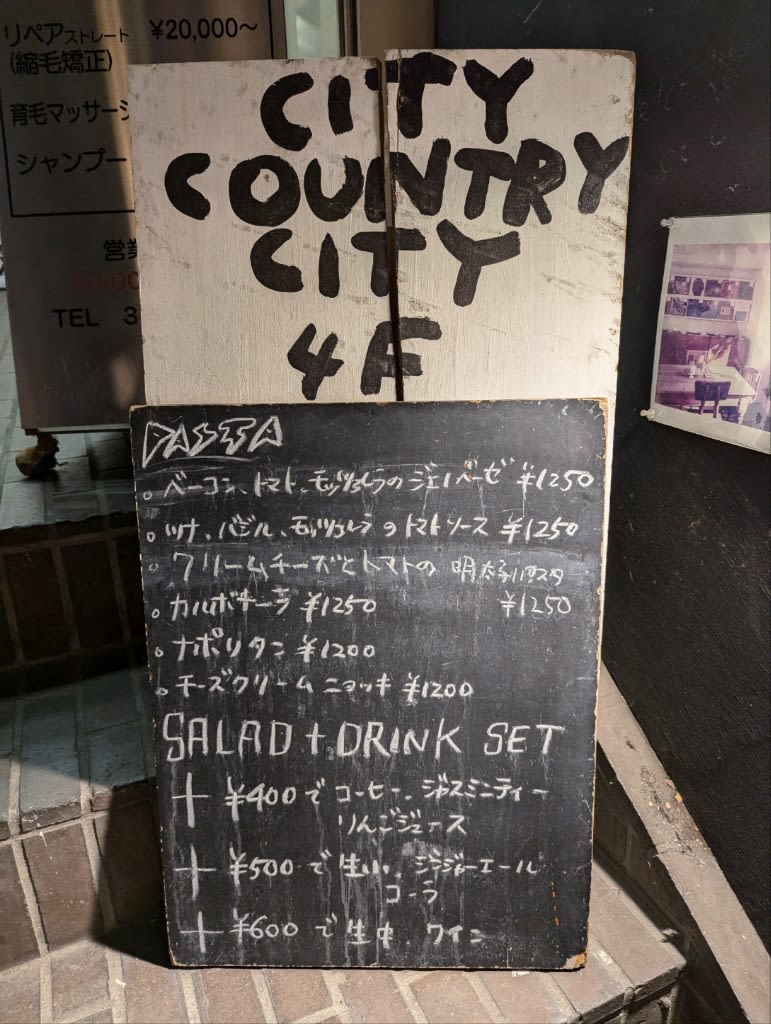 リペアストレート ¥20,000〜
(縮毛矯正)
育毛マッサージ
シャンプー
営業
TEL 3
CITY
COUNTRY
CITY
4F
PASTA
。ベーコン、トマト、モッツァレラのジェノベーゼ ¥1250
。ツナ、バジル、モッツァレラのトマトソース ¥1250
。クリームチーズとトマトの 明太子パスタ
¥1250
。カルボナーラ ¥1250
。ナポリタン ¥1200
。チーズクリームニョッキ ¥1200
SALAD + DRINK SET
+ ¥400で コーヒー、ジャスミンティー
りんごジュース
+ ¥500で 生小、ジンジャーエール
コーラ
+ ¥600で 生中、ワイン